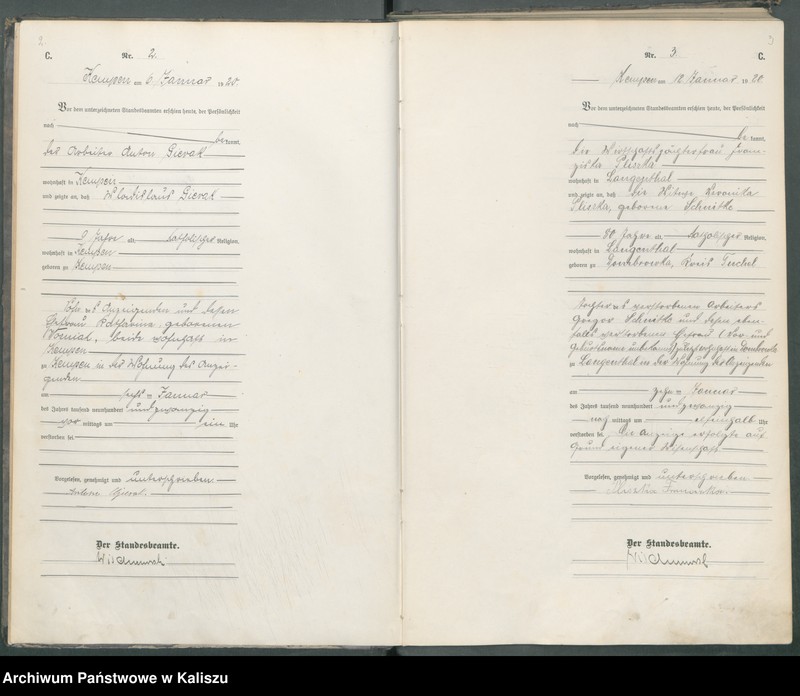 2.
C.
Nr. 2.
Kempen am 6 Januar 1920.
Vor dem unterzeichneten Standesbeamten erschien heute, der Persönlichkeit
nach
be kannt,
des Arbeiter Anton Gierak
wohnhaft in Kempen
und zeigte an, daß Wladislaus Gierak
9 Jahre alt, katholischer Religion,
wohnhaft in Kempen
geboren zu Kempen
Sohn des Anzeigenden und dessen
Ehefrau Katharina geborenen
beide wohnhaft in
Kempen
zu Kempen in der Wohnung des Anzei-
genden
am Januar
des Jahres tausend neunhundert und zwanzig
vor mittags um Uhr
verstorben sei.
Vorgelesen, genehmigt und unterschrieben
Der Standesbeamte.
3
Nr. 3.
C.
Kempen am 12 Januar 1920
Vor dem unterzeichneten Standesbeamten erschien heute, der Persönlichkeit
nach
be kannt,
die Wirtschaftspächterfrau Fran-
ziska Pliszka
wohnhaft in Langenthal
und zeigte an, daß die Witwe Veronika
Pliszka, geborene Schnitke
90 Jahre alt, katholischer Religion,
wohnhaft in Langenthal
geboren zu Dombrowka, Kreis Tuchel
Tochter des verstorbenen Arbeiters
Gregor Schnitke und dessen eben-
falls verstorbenen Ehefrau (Vor- und
Geburtsname unbekannt) zuletzt wohnhaft in Dombrowka
zu Langenthal in der Wohnung der Anzeigenden
am zehn Januar
des Jahres tausend neunhundert und zwanzig
nach mittags um Uhr
verstorben sei. Die Anzeige erfolgte auf
Grund eigener Wissenschaft
Vorgelesen, genehmigt und unterschrieben
Pliszka
Der Standesbeamte.
Archiwum Państwowe w Kaliszu